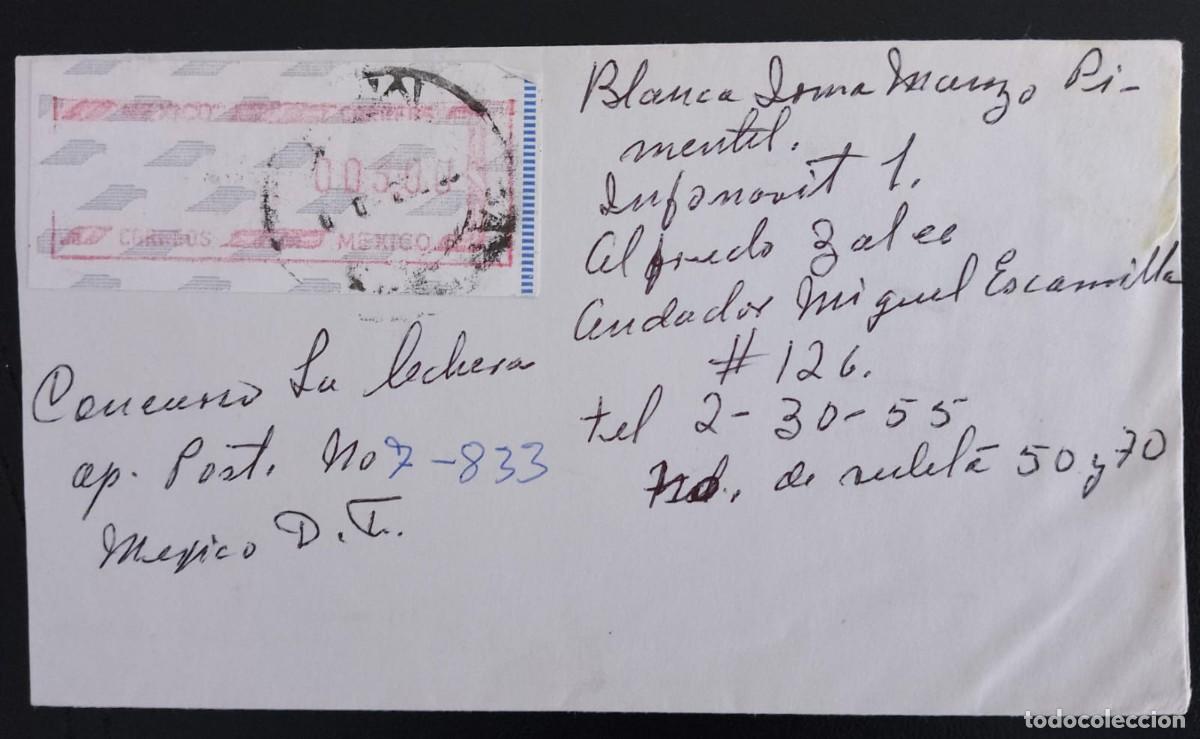 MEXICO CORREOS
00500
CORREOS MEXICO
Blanca Irma Manzo Pi-
mentel.
Infonavit 1.
Alfredo Zalce
Andador Miguel Escamilla
# 126.
tel 2-30-55
No. de ruleta 50 y 70
Concurso La lechera
ap. Post. No 7-833
Mexico D.F.
todocoleccion